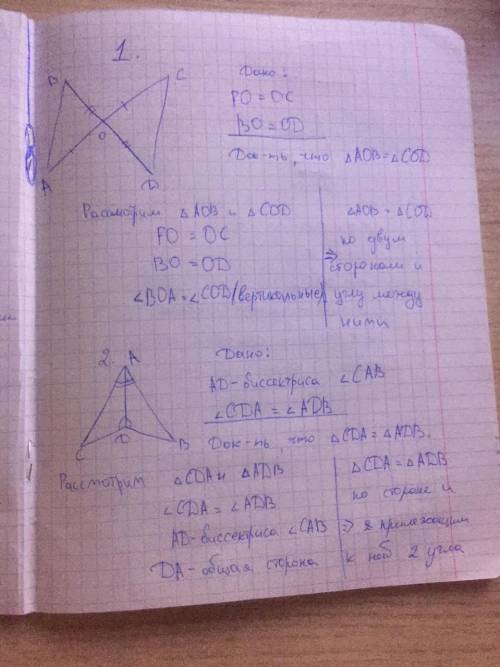 1.
B
C
O
A
D
Дано:
FO = OC
BO = OD
Док-ть, что △AOB = △COD
Рассмотрим △AOB и △COD
FO = OC
BO = OD
∠BOA = ∠COD (вертикальные)
⇒
△AOB = △COD
по двум
сторонам и
углу между
ними
2.
A
C
D
B
Дано:
AD - биссектриса ∠CAB
∠CDA = ∠ADB
Док-ть, что △CDA = △ADB.
Рассмотрим △CDA и △ADB
∠CDA = ∠ADB
AD - биссектриса ∠CAB
DA - общая сторона
⇒
△CDA = △ADB
по стороне и
2 прилежащим
к ней 2 угла